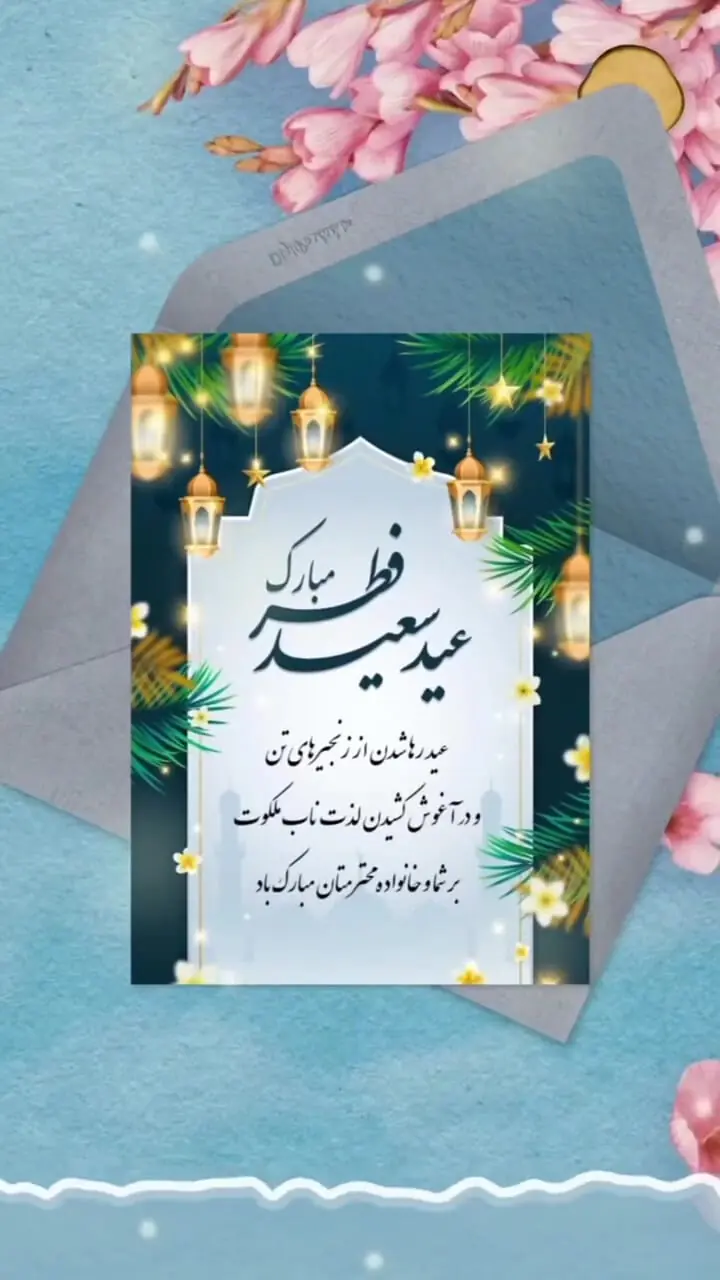 عید سعید فطر مبارک
عید رها شدن از زنجیرهای تن
و در آغوش کشیدن لذت ناب ملکوت
بر شما و خانواده محترمتان مبارک باد